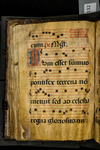 tum. ps Dixit
Dum esset summus
pontifex terrena no
metuit sed ad celestia
regna gloriosus mi